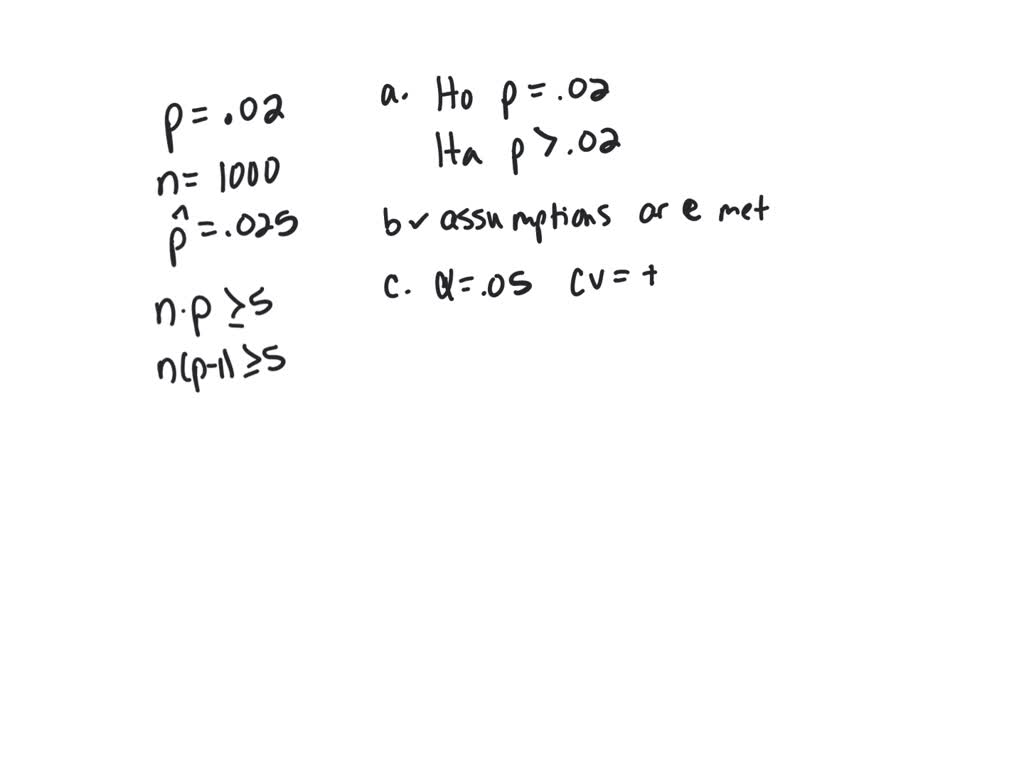 p = .02
n = 1000
p̂ = .025
n·p ≥ 5
n(p-1) ≥ 5
a. Ho p = .02
Ha p > .02
b ✓ assumptions are met
c. α = .05 CV = +